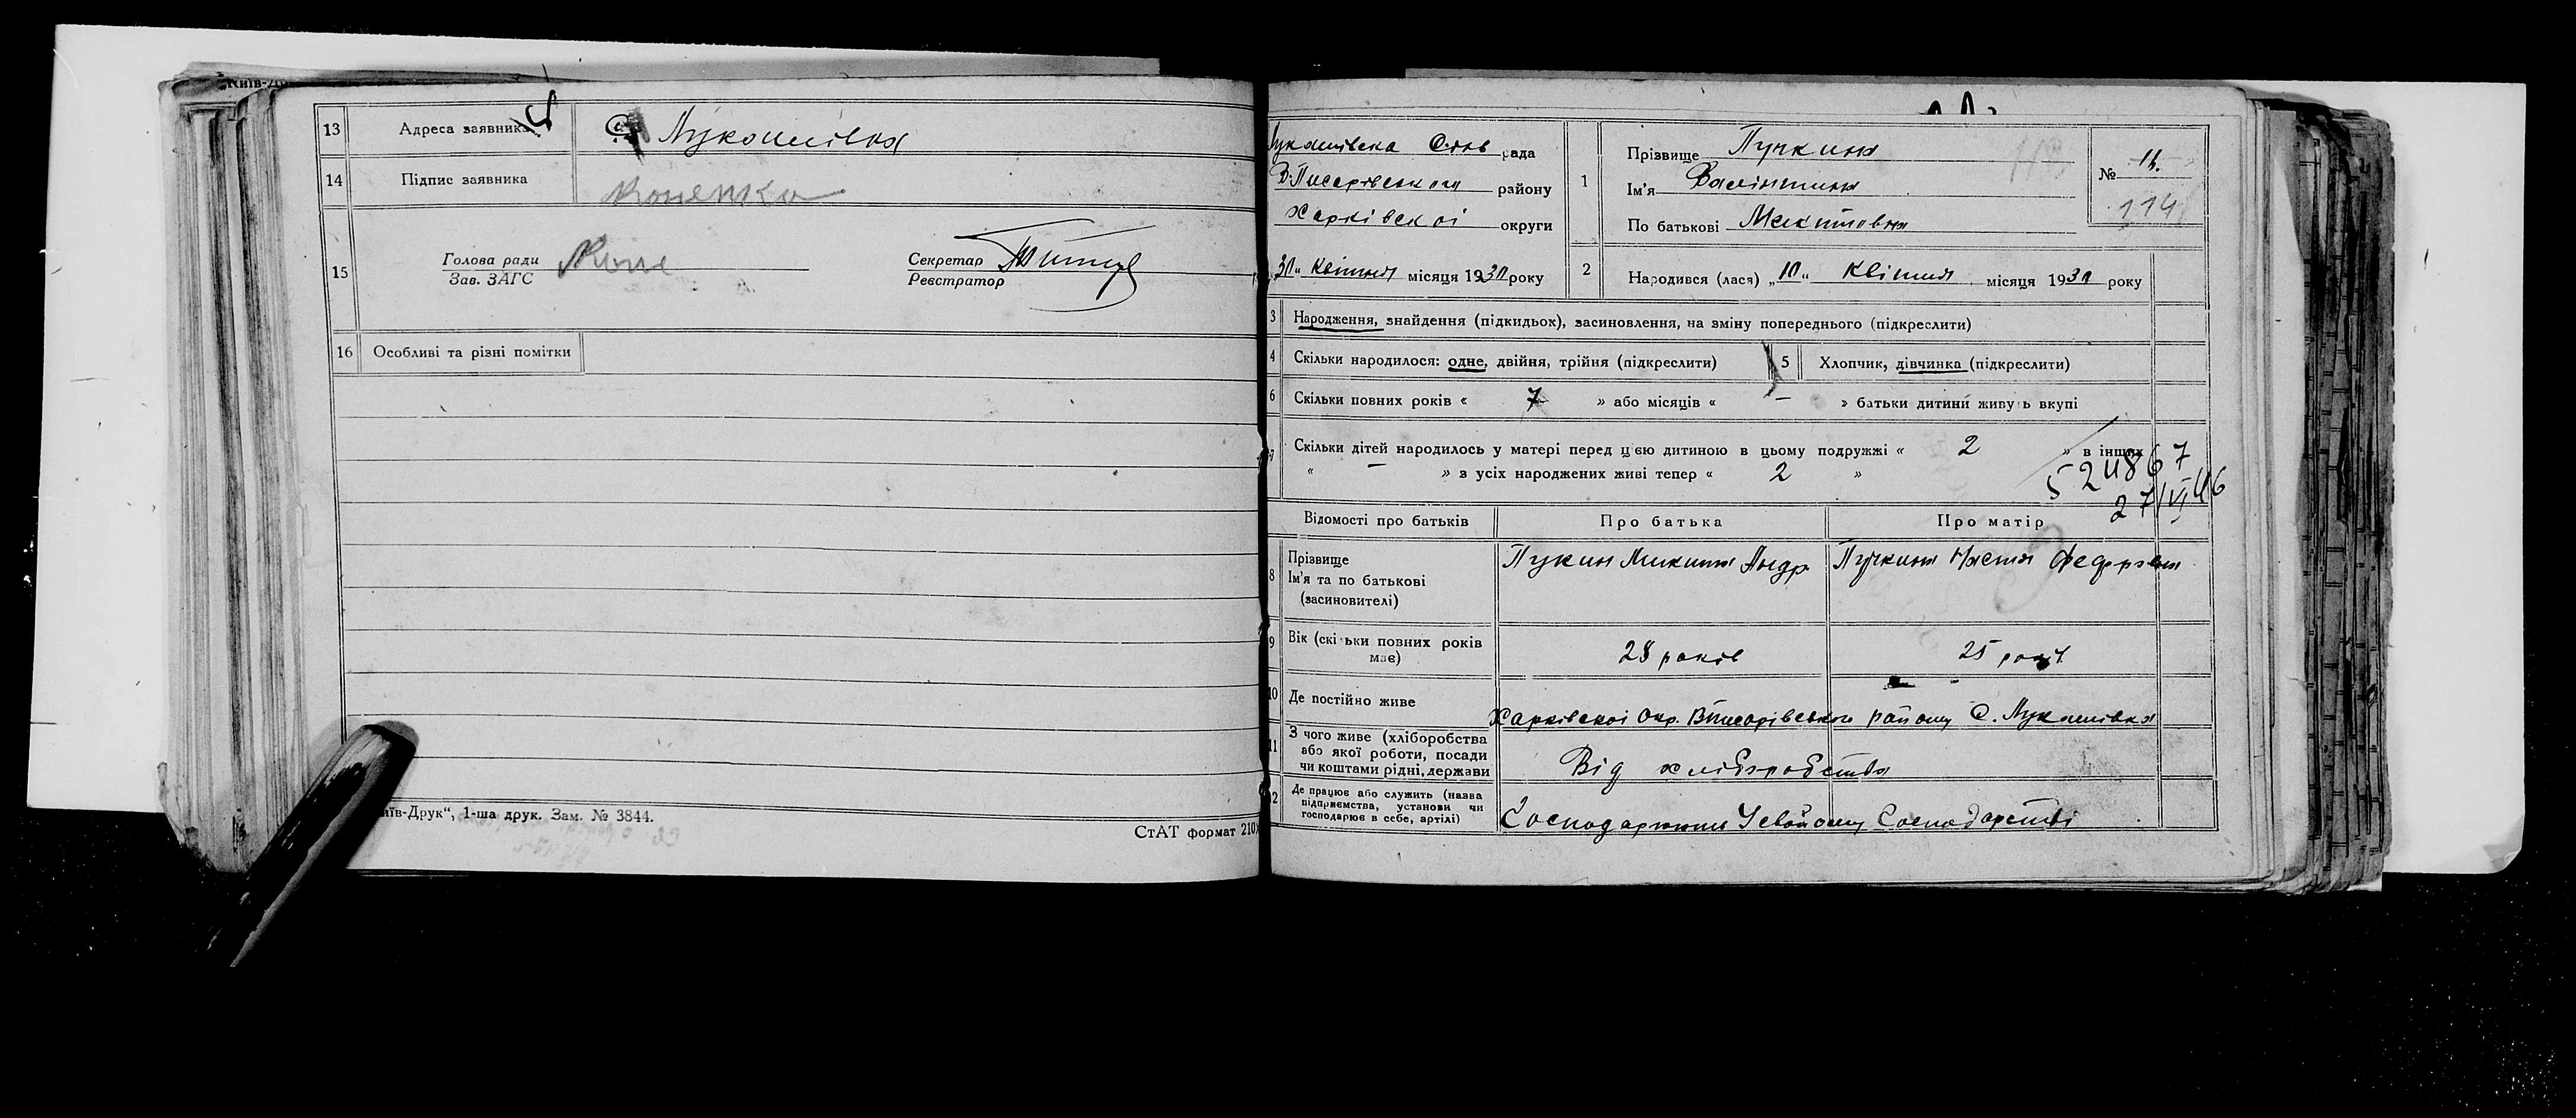 Київ-Др
13 Адреса заявника С. Лукашівка
14 Підпис заявника Коненко
15 Голова ради
Зав. ЗАГС
Секретар
Реєстратор
16 Особливі та різні помітки
иїв-Друк“, 1-ша друк. Зам. № 3844.
СтАТ формат 210
Лукашівска Січв рада
В-Писарівського району
Харківскоі округи
30 „ Квітня місяця 1930 року
1 Прізвище Пучкина
Ім'я Валінтина
По батькові Микитовна
№ 11.
114
2 Народився (лася) „10 „ Квітня місяця 1930 року
3 Народження, знайдення (підкидьок), засиновлення, на зміну попереднього (підкреслити)
4 Скільки народилося: одне, двійня, трійня (підкреслити) 5 Хлопчик, дівчинка (підкреслити)
6 Скільки повних років « 7 » або місяців « — » батьки дитини живуть вкупі
7 Скільки дітей народилось у матері перед цією дитиною в цьому подружжі « 2 » в інших
« — » з усіх народжених живі тепер « 2 »
524867
27/VI 46
Відомості про батьків Про батька Про матір
8 Прізвище
Ім'я та по батькові
(засиновителі)
Пукин Микита Андр
Пучкина Настя Федоровна
9 Вік (скільки повних років
має)
28 років
25 років
10 Де постійно живе
Харківскоі Окр. ВПисарівського району С. Лукашівка
11 З чого живе (хліборобства
або якої роботи, посади
чи коштами рідні, держави
Від хліборобства
12 Де працює або служить (назва
підприємства, установи чи
господарює в себе, артілі)
Господарюють Усвойому Господарстві